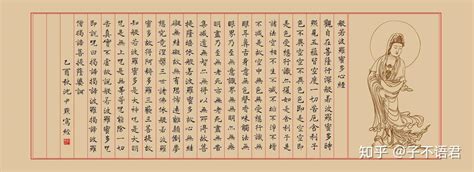 般若波羅蜜多心經
觀自在菩薩行深般若波羅蜜多時
照見五蘊皆空度一切苦厄舍利子
色不異空空不異色色即是空空即
是色受想行識亦復如是舍利子是
諸法空相不生不滅不垢不淨不增
不減是故空中無色無受想行識無
眼耳鼻舌身意無色聲香味觸法無
眼界乃至無意識界無無明亦無無
明盡乃至無老死亦無老死盡無苦
集滅道無智亦無得以無所得故菩
提薩埵依般若波羅蜜多故心無罣
礙無罣礙故無有恐怖遠離顛倒夢
想究竟涅槃三世諸佛依般若波羅
蜜多故得阿耨多羅三藐三菩提故
知般若波羅蜜多是大神咒是大明
咒是無上咒是無等等咒能除一切
苦真實不虛故說般若波羅蜜多咒
即說咒曰揭諦揭諦波羅揭諦波羅
僧揭諦菩提薩婆訶
乙酉秋沈中
知乎 @子不語君